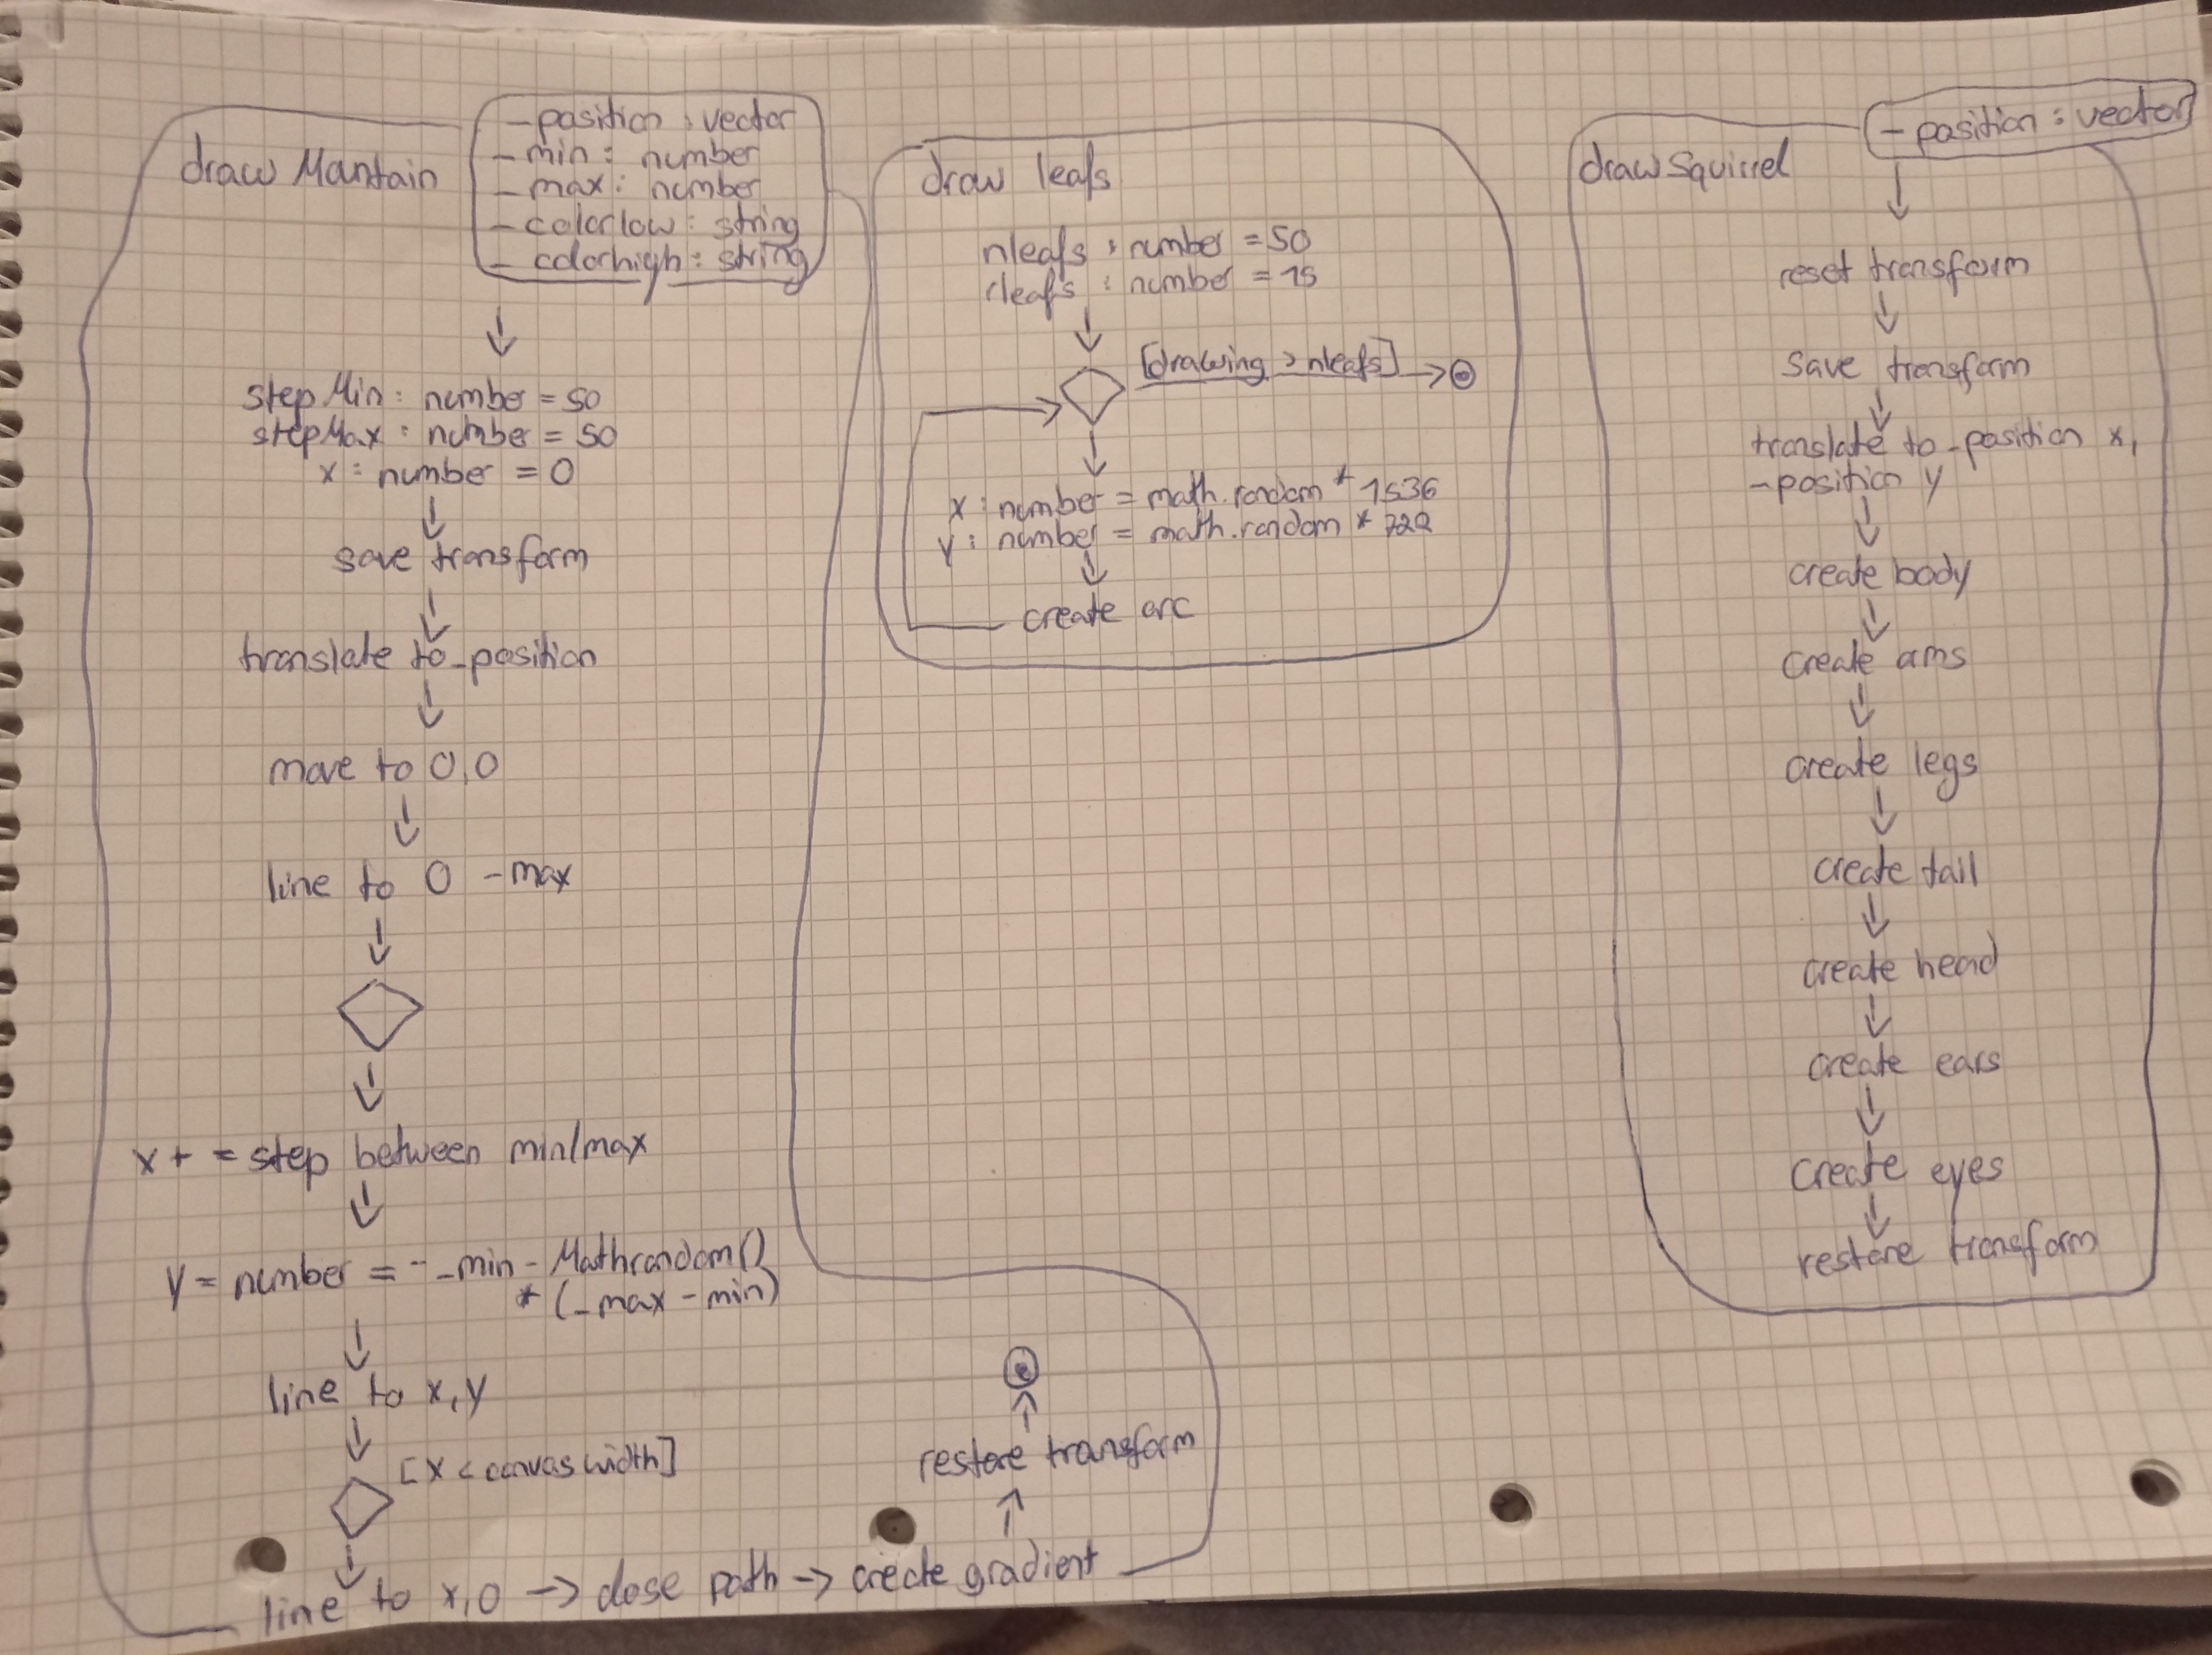 draw Mantain
_position : vector
_min : number
_max : number
_colorlow : string
_colorhigh : string
stepMin : number = 50
stepMax : number = 50
x : number = 0
save transform
translate to _position
move to 0,0
line to 0 -max
x + = step between min/max
y = number = - _min - Mathrandom()
* (_max - min)
line to x,y
[x < canvas width]
line to x,0 -> close path -> create gradient
restore transform
draw leafs
nleafs : number = 50
rleafs : number = 15
[drawing > nleafs]
x : number = math.random * 1536
y : number = math.random *
create arc
draw Squirrel
_position : vector
reset transform
save transform
translate to _position x,
_position y
create body
create ams
create legs
create tail
create head
create ears
create eyes
restore transform